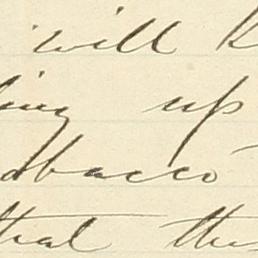 will k
ing up
obacco
that the